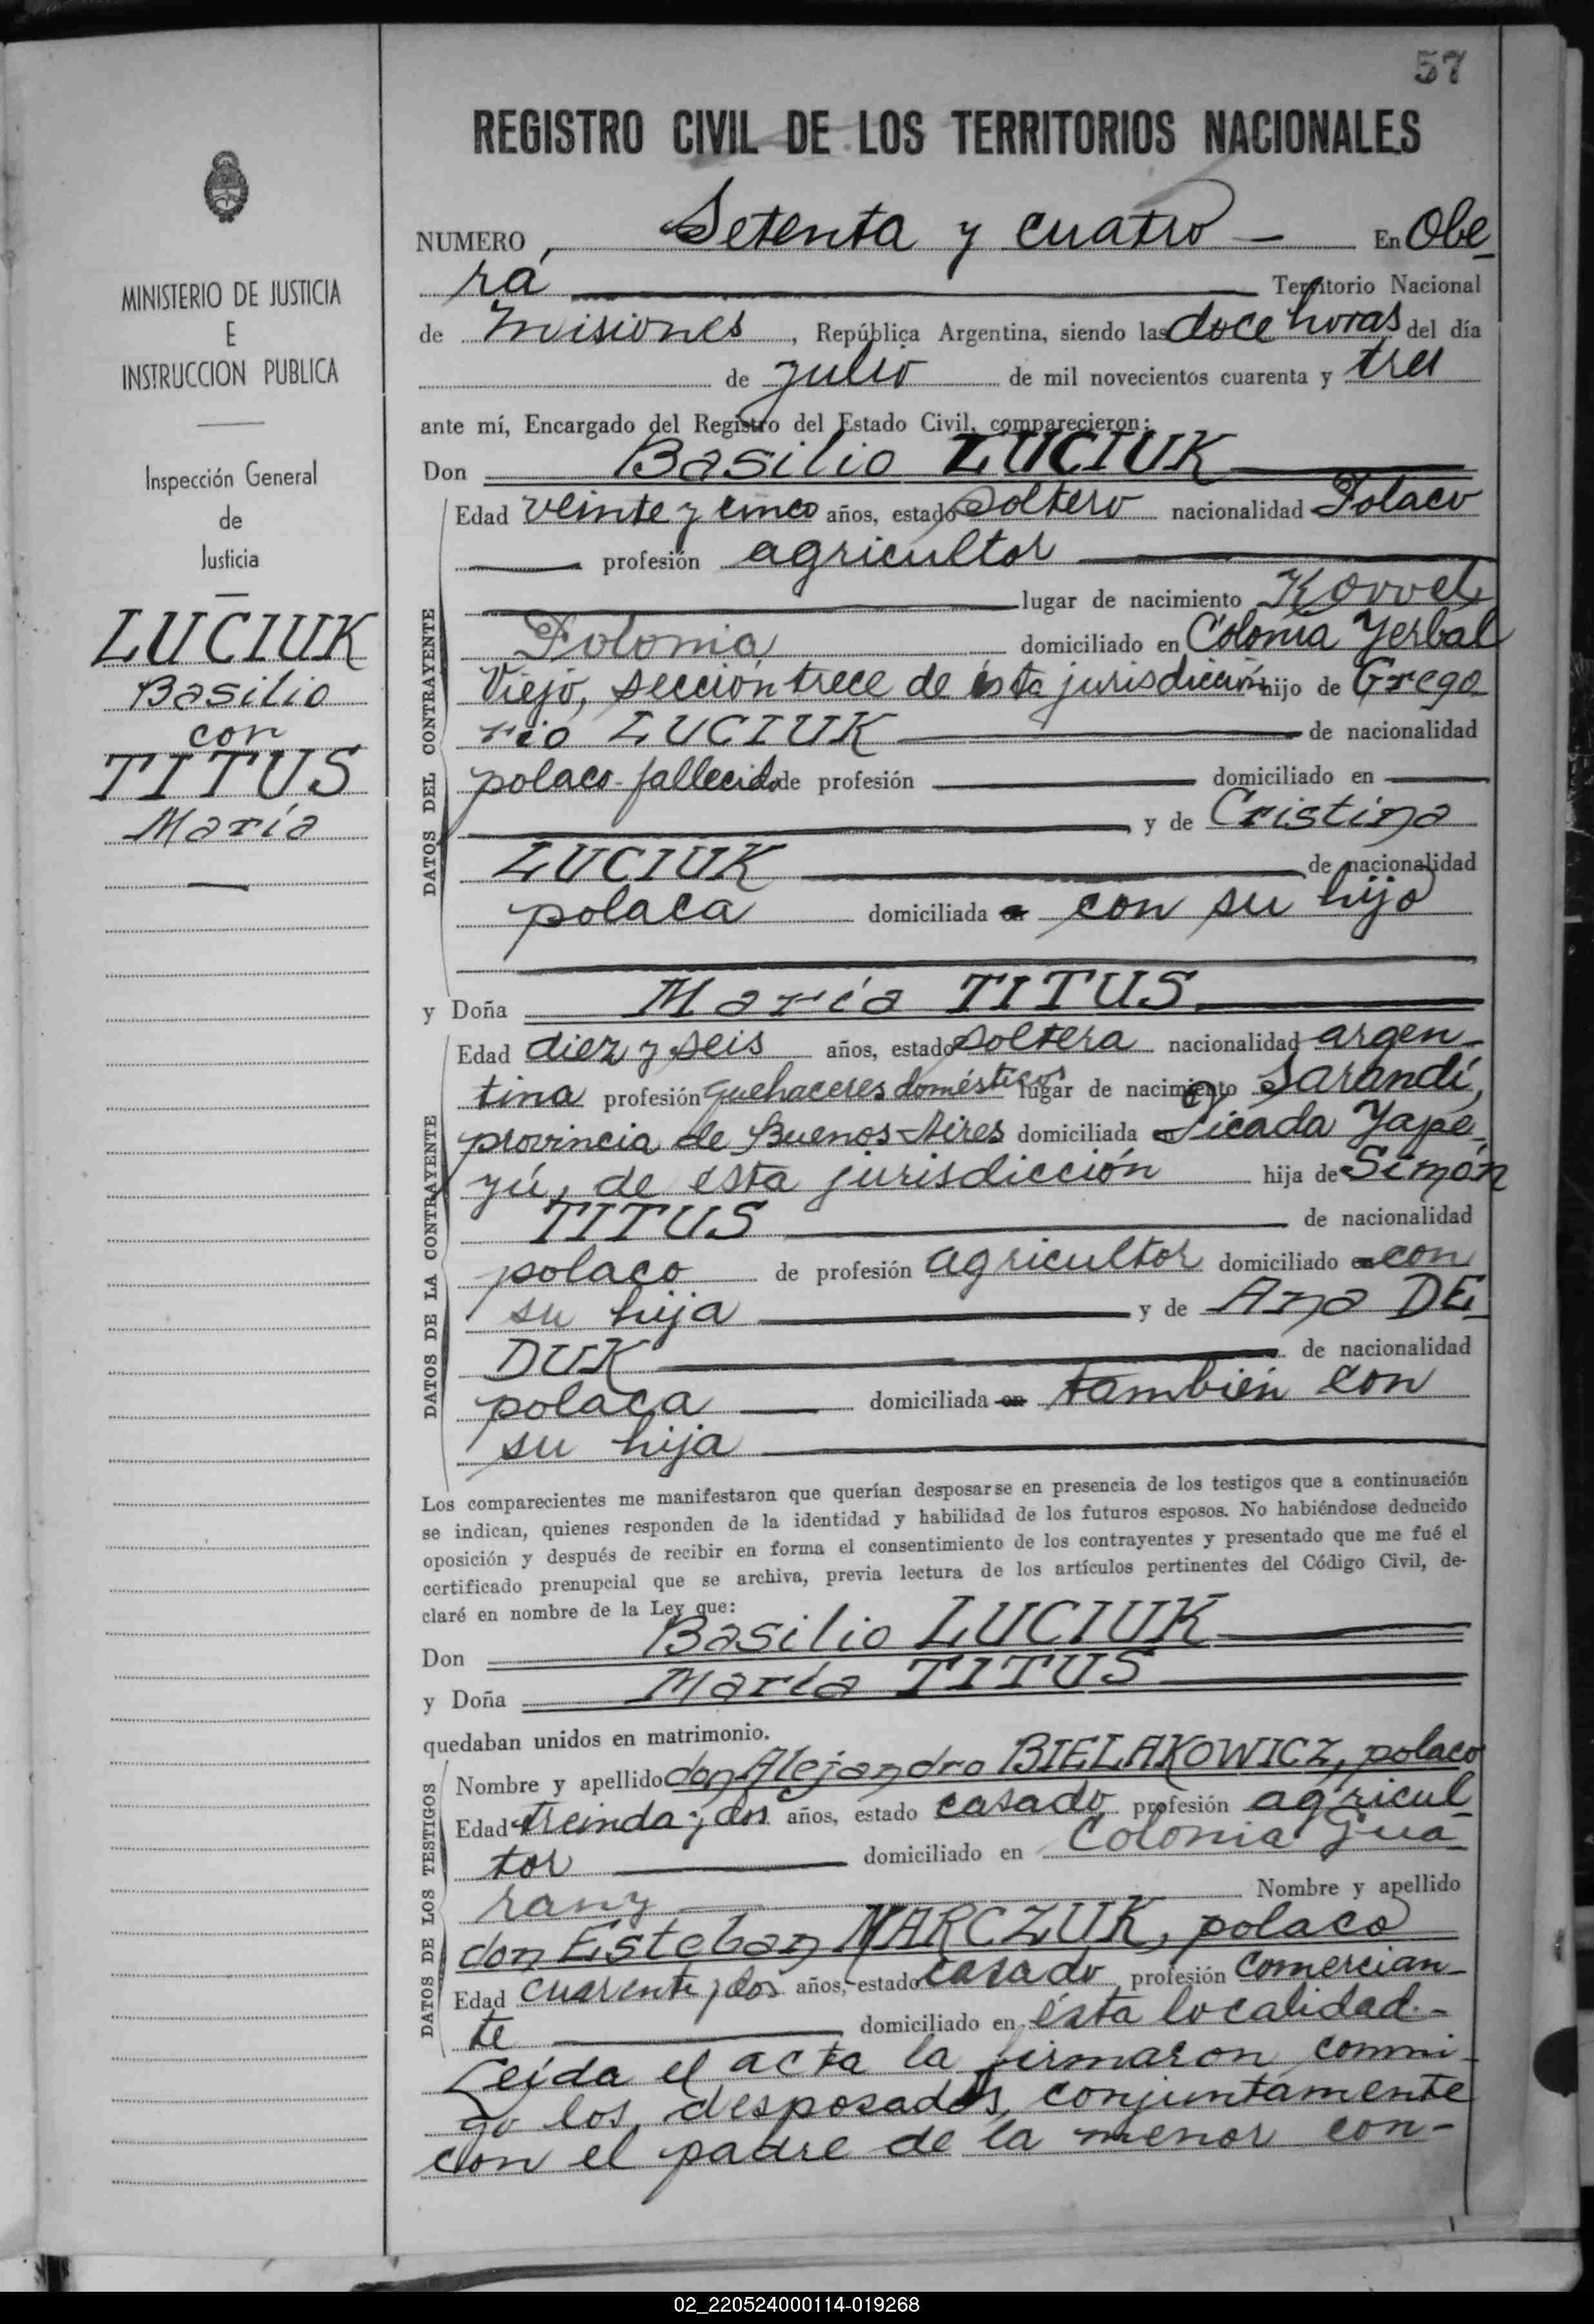 57
REGISTRO CIVIL DE LOS TERRITORIOS NACIONALES
MINISTERIO DE JUSTICIA
E
INSTRUCCION PUBLICA
Inspección General
de
Justicia
LUCIUK
Basilio
con
TITUS
María
NUMERO, Setenta y cuatro - En Obe
rá Territorio Nacional
de Misiones, República Argentina, siendo las doce horas del día
de julio de mil novecientos cuarenta y tres
ante mí, Encargado del Registro del Estado Civil, comparecieron:
Don Basilio LUCIUK
DATOS DEL CONTRAYENTE
Edad veinte y cinco años, estado soltero nacionalidad Polaco
profesión agricultor
lugar de nacimiento Kowel
Polonia domiciliado en Colonia Yerbal
Viejo, sección trece de ésta jurisdicción hijo de Grego
rio LUCIUK de nacionalidad
polaco-fallecido de profesión domiciliado en
y de Cristina
LUCIUK de nacionalidad
polaca domiciliada con su hijo
y Doña María TITUS
DATOS DE LA CONTRAYENTE
Edad diez y seis años, estado soltera nacionalidad argen-
tina profesión quehaceres domésticos lugar de nacimiento Sarandí,
provincia de Buenos Aires domiciliada en Picada Yape-
yú, de esta jurisdicción hija de Simón
TITUS de nacionalidad
polaco de profesión agricultor domiciliado con
su hija y de Ana DE
DUK de nacionalidad
polaca domiciliada también con
su hija
Los comparecientes me manifestaron que querían desposarse en presencia de los testigos que a continuación
se indican, quienes responden de la identidad y habilidad de los futuros esposos. No habiéndose deducido
oposición y después de recibir en forma el consentimiento de los contrayentes y presentado que me fué el
certificado prenupcial que se archiva, previa lectura de los artículos pertinentes del Código Civil, de-
claré en nombre de la Ley que:
Don Basilio LUCIUK
y Doña María TITUS
quedaban unidos en matrimonio.
DATOS DE LOS TESTIGOS
Nombre y apellido don Alejandro BIELAKOWICZ, polaco
Edad treinda y dos años, estado casado profesión agricul
tor domiciliado en Colonia Gua
rany Nombre y apellido
don Esteban MARCZUK, polaco
Edad cuarenta y dos años, estado casado profesión comercian-
te domiciliado en ésta localidad.-
Leída el acta la firmaron conmi-
go los desposados, conjuntamente
con el padre de la menor con-
02_220524000114-019268